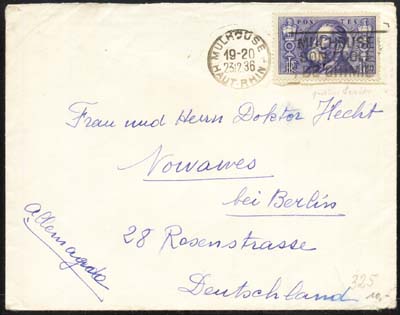 MULHOUSE
19-20
23 12 36
HAUT-RHIN
POSTES
MULHOUSE
Frau und Herrn Doktor Hecht
Nowawes
bei Berlin
28 Rosenstrasse
Deutschland
Allemagne
325
10,-